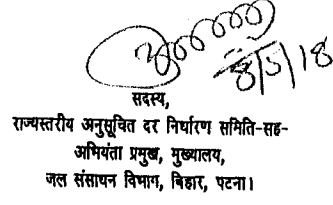 8/5/18
सदस्य,
राज्यस्तरीय अनुसूचित दर निर्धारण समिति-सह-
अभियंता प्रमुख, मुख्यालय,
जल संसाधन विभाग, बिहार, पटना।